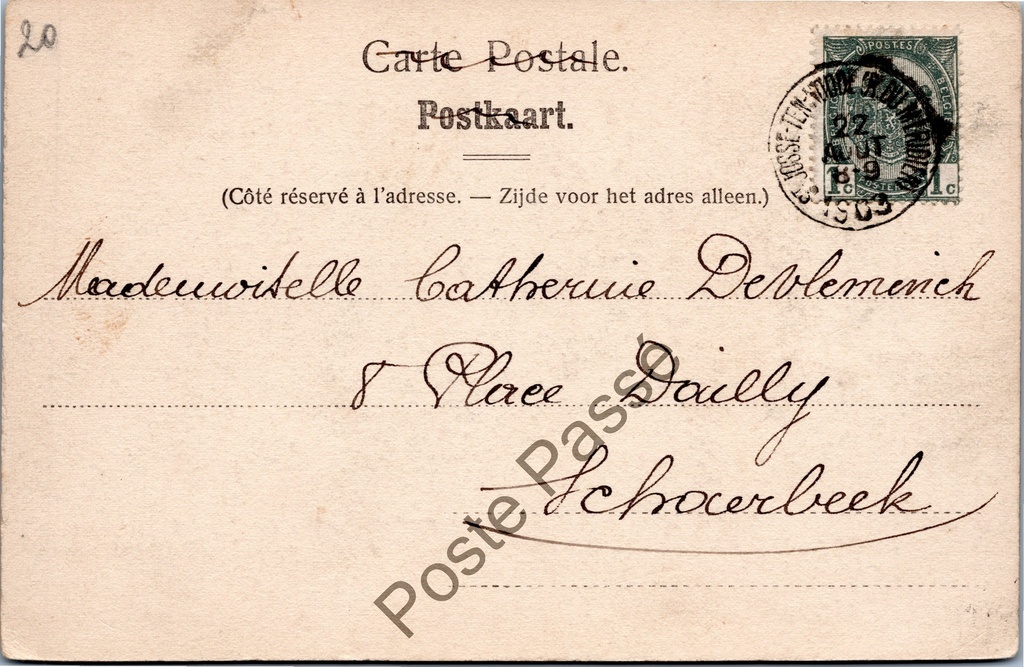 20
Carte Postale.
Postkaart.
(Côté réservé à l'adresse. — Zijde voor het adres alleen.)
POSTES
1c 1c
ST JOSSE-TEN-NOODE
22
AOUT
8-9
1903
Mademoiselle Catherine Devleminch
8 Place Dailly
Schaerbeek
Poste Passé